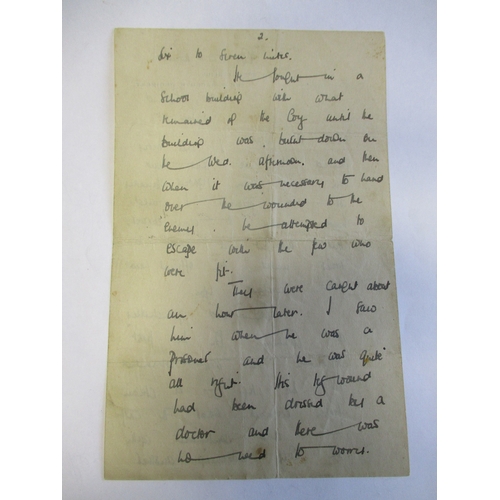 2.
six to seven miles.
He fought in a
School building with what
remained of the Coy until the
building was burnt down on
the Wed. afternoon. and then
when it was necessary to hand
over the wounded to the
Enemy. he attempted to
escape with the few who
were fit.
They were caught about
an hour later. I saw
him when he was a
prisoner and he was quite
all right. His leg wound
had been dressed by a
doctor and there was
no need to worry.